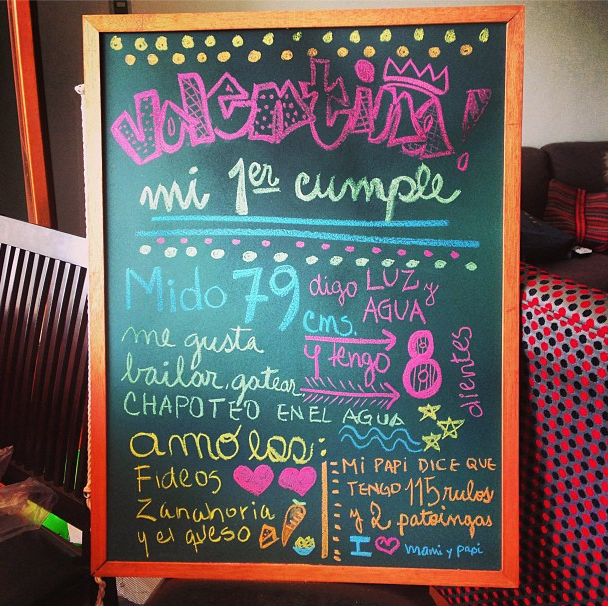 Valentina!
mi 1er cumple
Mido 79 cms.
digo LUZ y AGUA
y tengo 8 dientes
me gusta
bailar, gatear,
CHAPOTEO EN EL AGUA
amo los:
Fideos
Zanahoria
y el queso
MI PAPI DICE QUE
TENGO 115 rulos
y 2 patoingas
I mami y papi